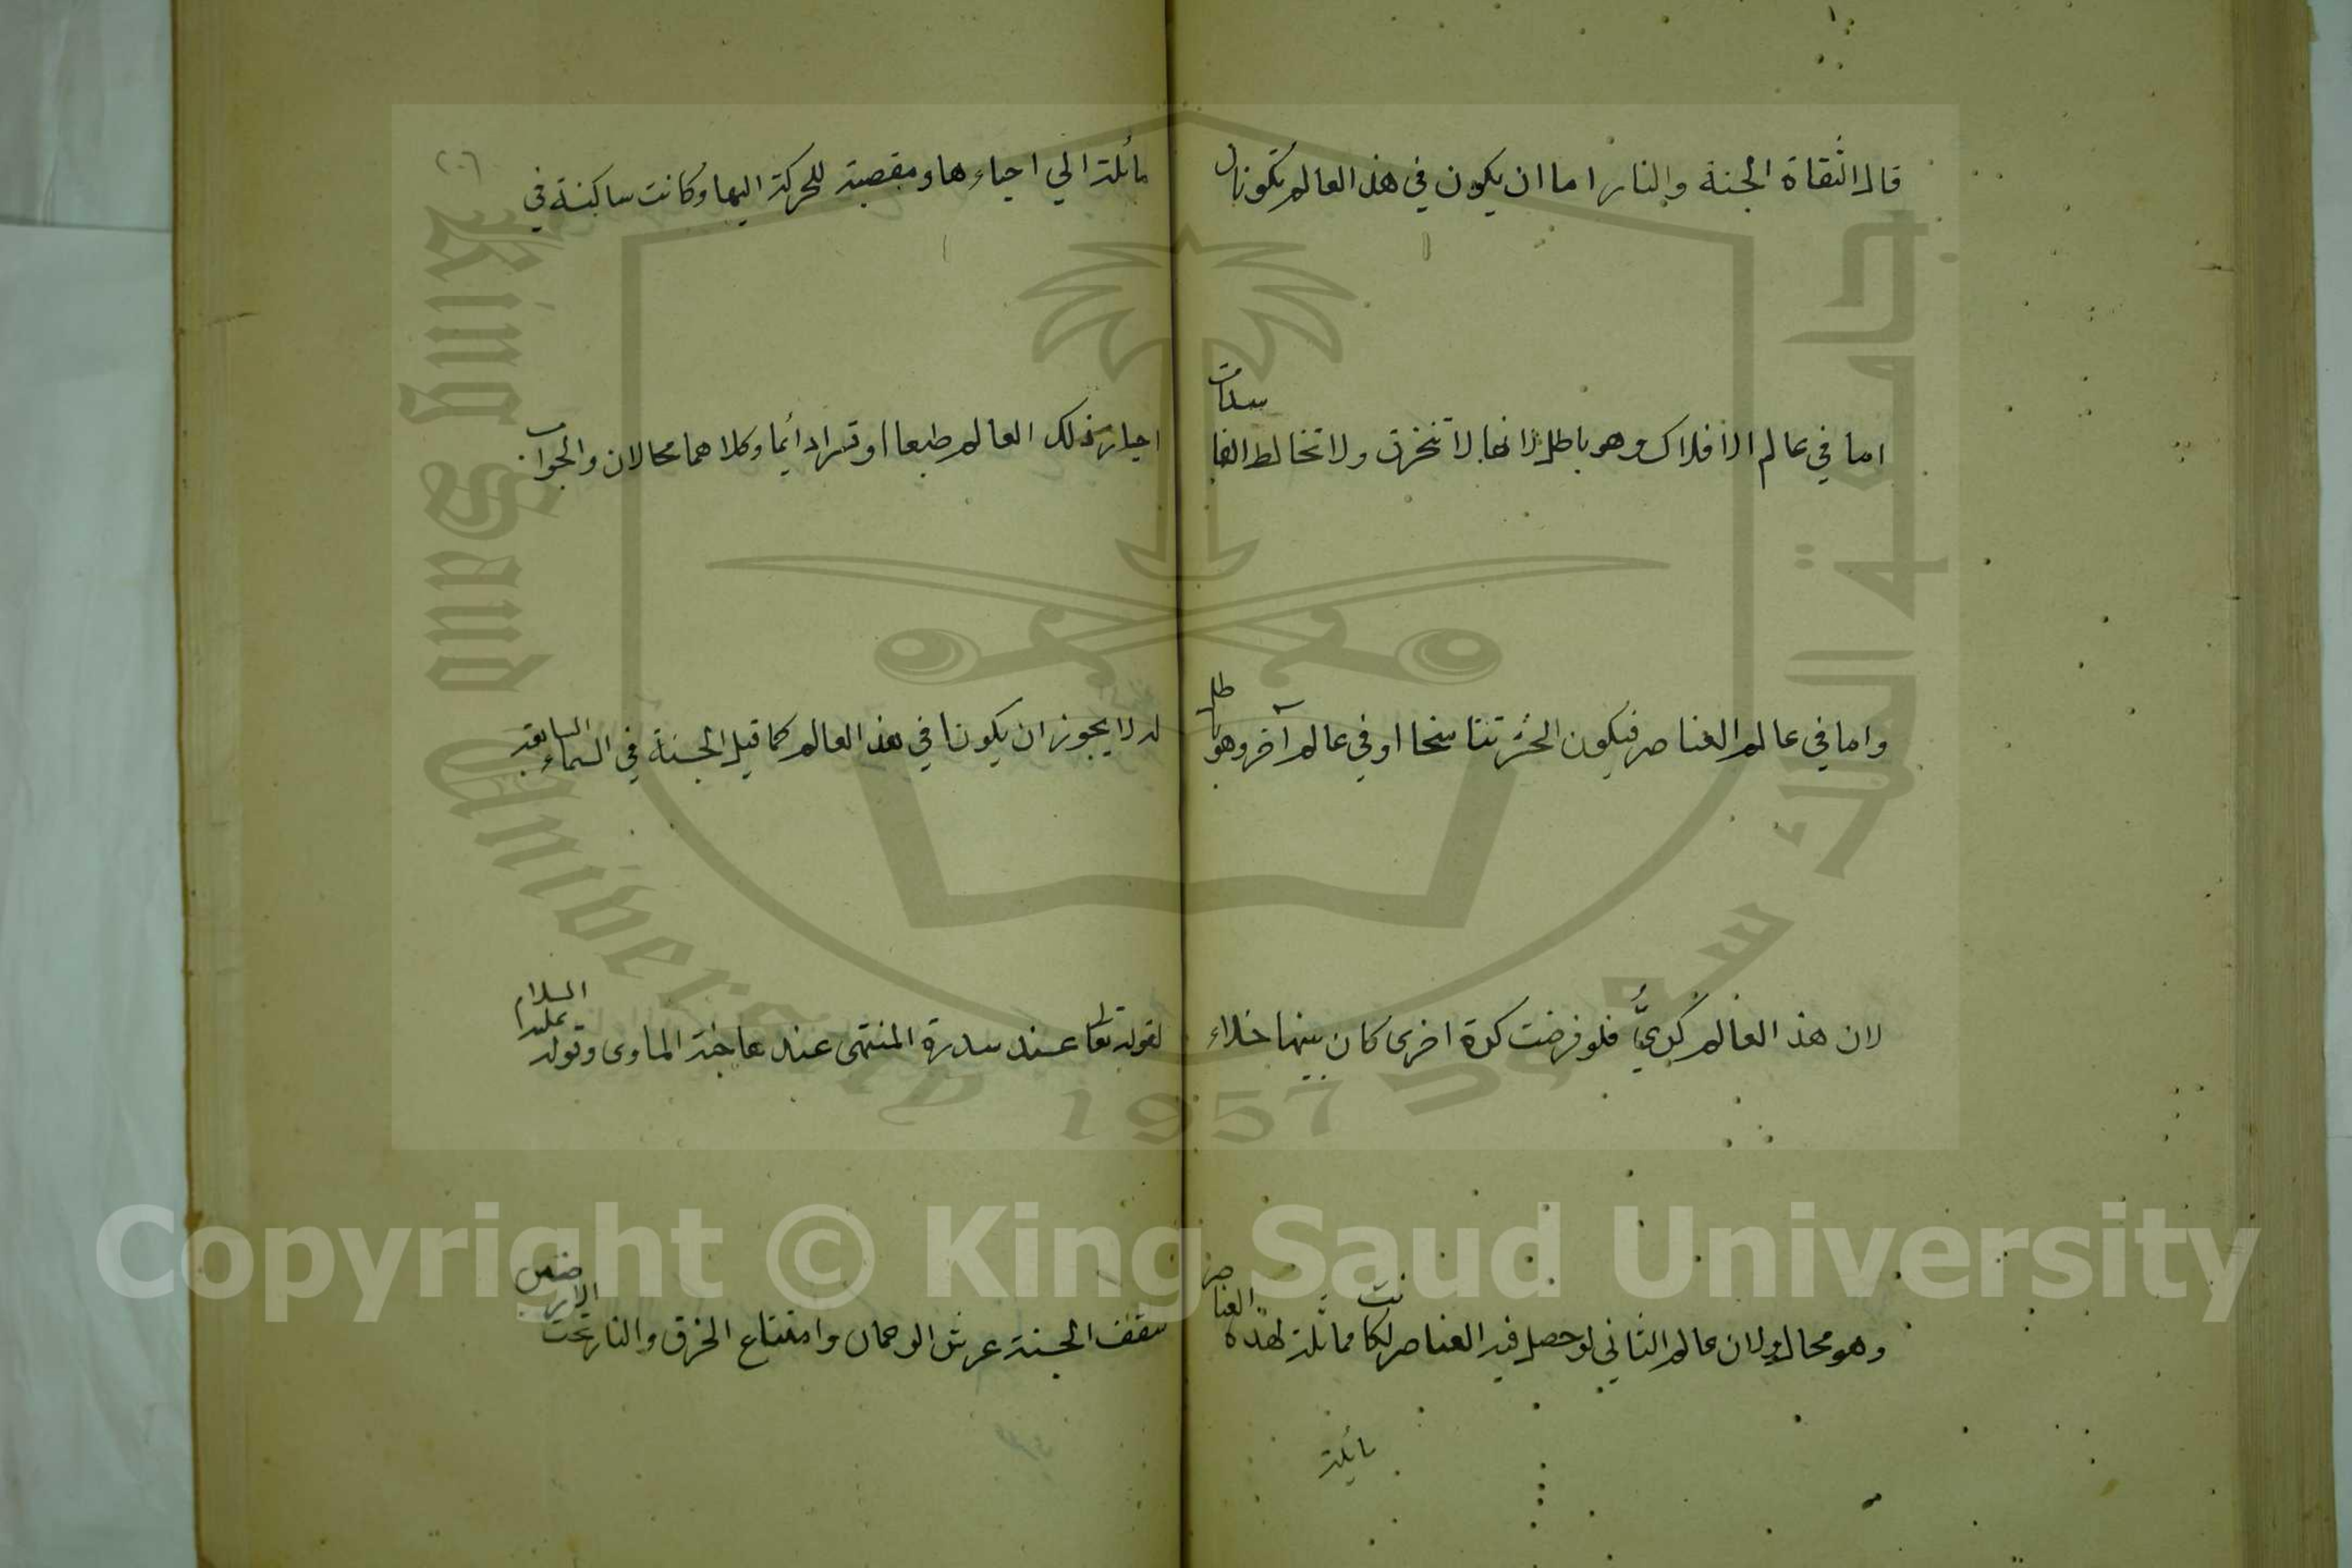 قال النفاة الجنة والنار اما ان يكون في هذ العالم تكونان
اما في عالم الافلاك وهو باطل لانها لا تنخرق ولا تخالط الفا
سدات
واما في عالم العناصر فيكون الحشر تناسخا او في عالم آخر وهو با
طل
لان هذ العالم كريٌّ فلو فرضت كرة اخرى كان بينهما خلاء
وهو محال ولان عالم الثاني لو حصل فيه العناصر لكا
نت مماثلة لهذه العناصر
مائلة
٢٠٦
مائلة الي احياءها و مقصية للحركة اليها وكانت ساكنة في
احياز ذلك العالم طبعا او قسرا دائما وكلاهما محالان والجواب
لم لا يجوز ان يكونا في هذ العالم كما قيل الجنة في السماء السابعة
لقوله تعالى عند سدرة المنتهى عندها جنة الماوى وقوله عليه السلام
سقف الجنة عرش الرحمان وامتناع الخرق والنار تحت الارضين
King Saud University
1957
جامعة الملك سعود
Copyright © King Saud University